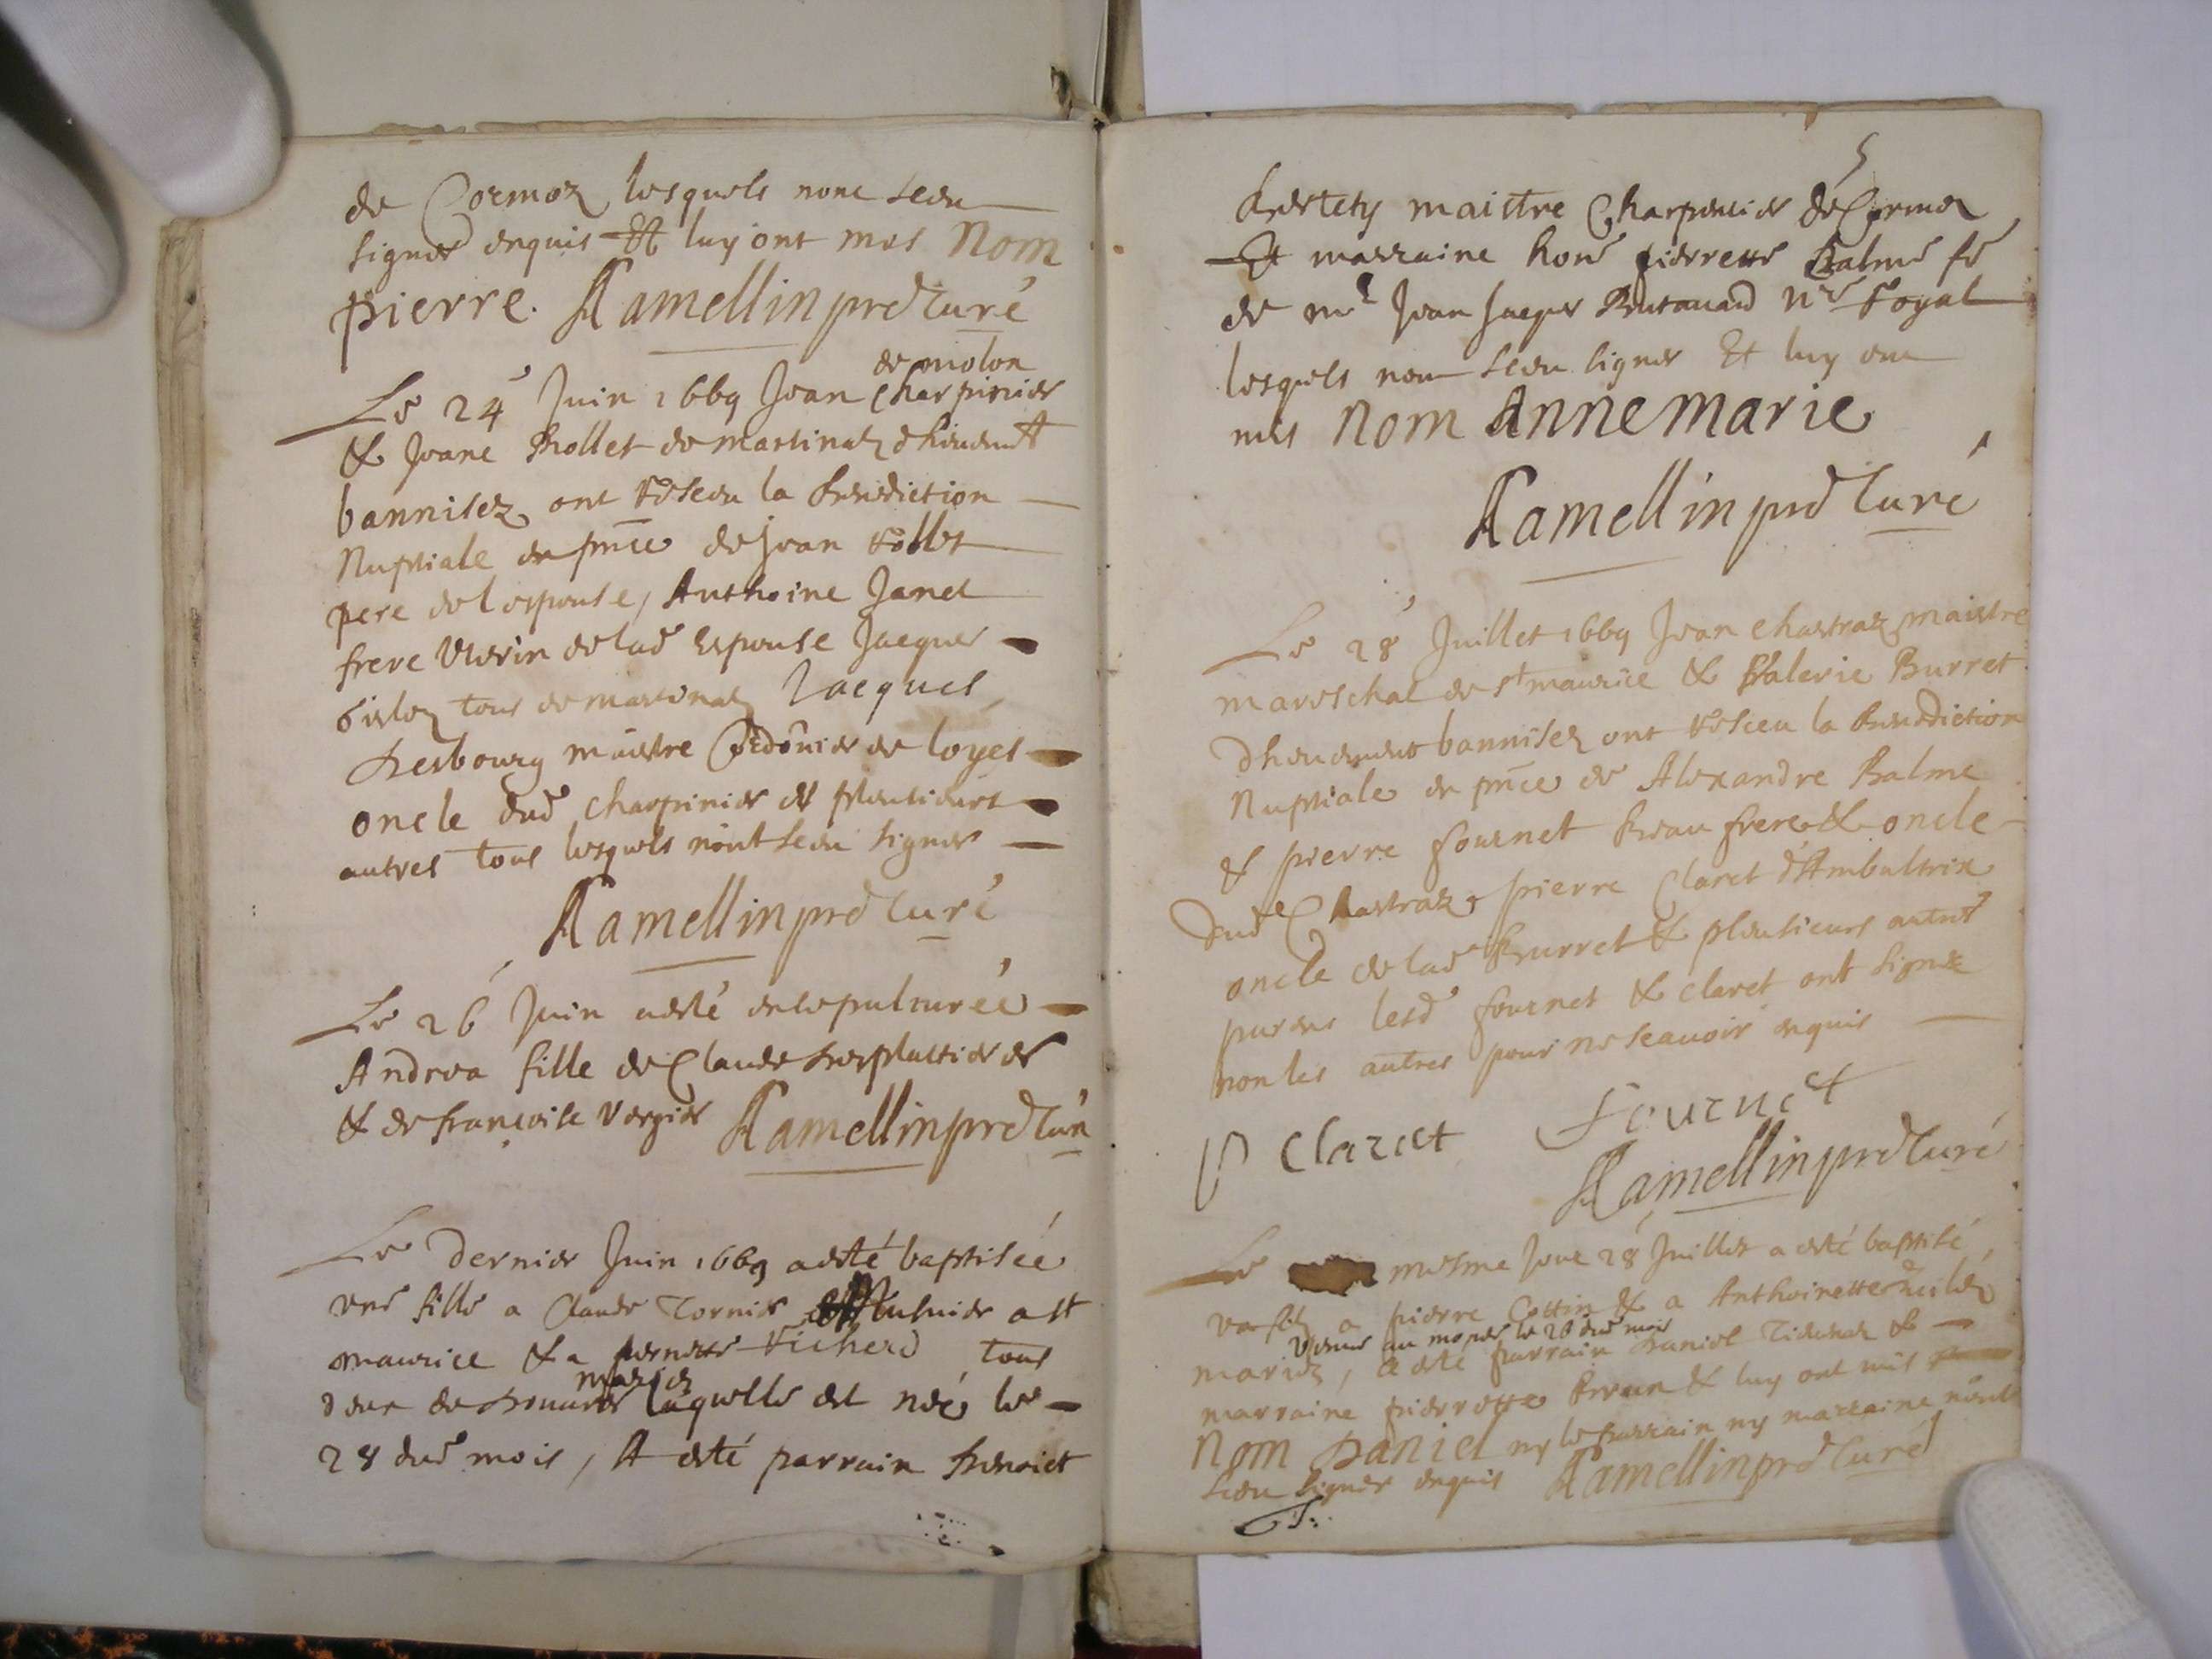 de Cormoz lesquels nont sceu
signer enquis Et luy ont mes Nom
pierre. Ramellin pred Curé
de molon
Le 24 Juin 1669 Jean charpinier
& Jeane Rollet de martinaz dheuemt
bannisez ont receu la benediction
Nuptiale en pnce de Jean rollet
pere de lespouse, Anthoine Janet
frere uterin de lad Espouse Jacques
tous de martinaz Jacques
Desbourg maistre Cordonier de loyes
oncle dud charpinier et pleusieurs
autres tous lesquels n'ont sceu signer
Ramellin pred Curé
Le 26 Juin a esté ensepulturée
Andrea fille de Claude
& de francoise Vergier Ramellin pred Curé
Le dernier Juin 1669 a esté baptisée
une fille a Claude Tornier a st
maurice & a pernette richerd tous
mariez
deux de laquelle est née le
28 dud mois, A esté parrain benoict
5
maistre Charpentier de Cormoz
Et marraine hone pierrette Balme fe
de me Jean Jaques nre royal
lesquels nont sceu signer Et luy ont
mis Nom Anne marie
Ramellin pred Curé
Le 28 Juillet 1669 Jean chastraz maistre
mareschal de st maurice & Valerie Burret
dheuement bannisez ont resceu la benediction
Nuptiale en pnce de Alexandre Balme
& pierre fournet beau frere & oncle
dud Chastraz, pierre Claret d'Ambultrix
oncle de lad Burret & pleusieurs autres
parens lesd fournet & claret ont signez
non les autres pour ne scauoir enquis
P Claret fournet
Ramellin pred Curé
Le mesme jour 28 Juillet a esté baptisé
un filz a pierre Cottin & a Anthoinette
venu au monde le 26 dud mois
mariez, a esté parrain Daniel &
marraine pierrette & luy ont mis
Nom Daniel ny le parrain ny marraine n'ont
sceu signer enquis Ramellin pred Curé